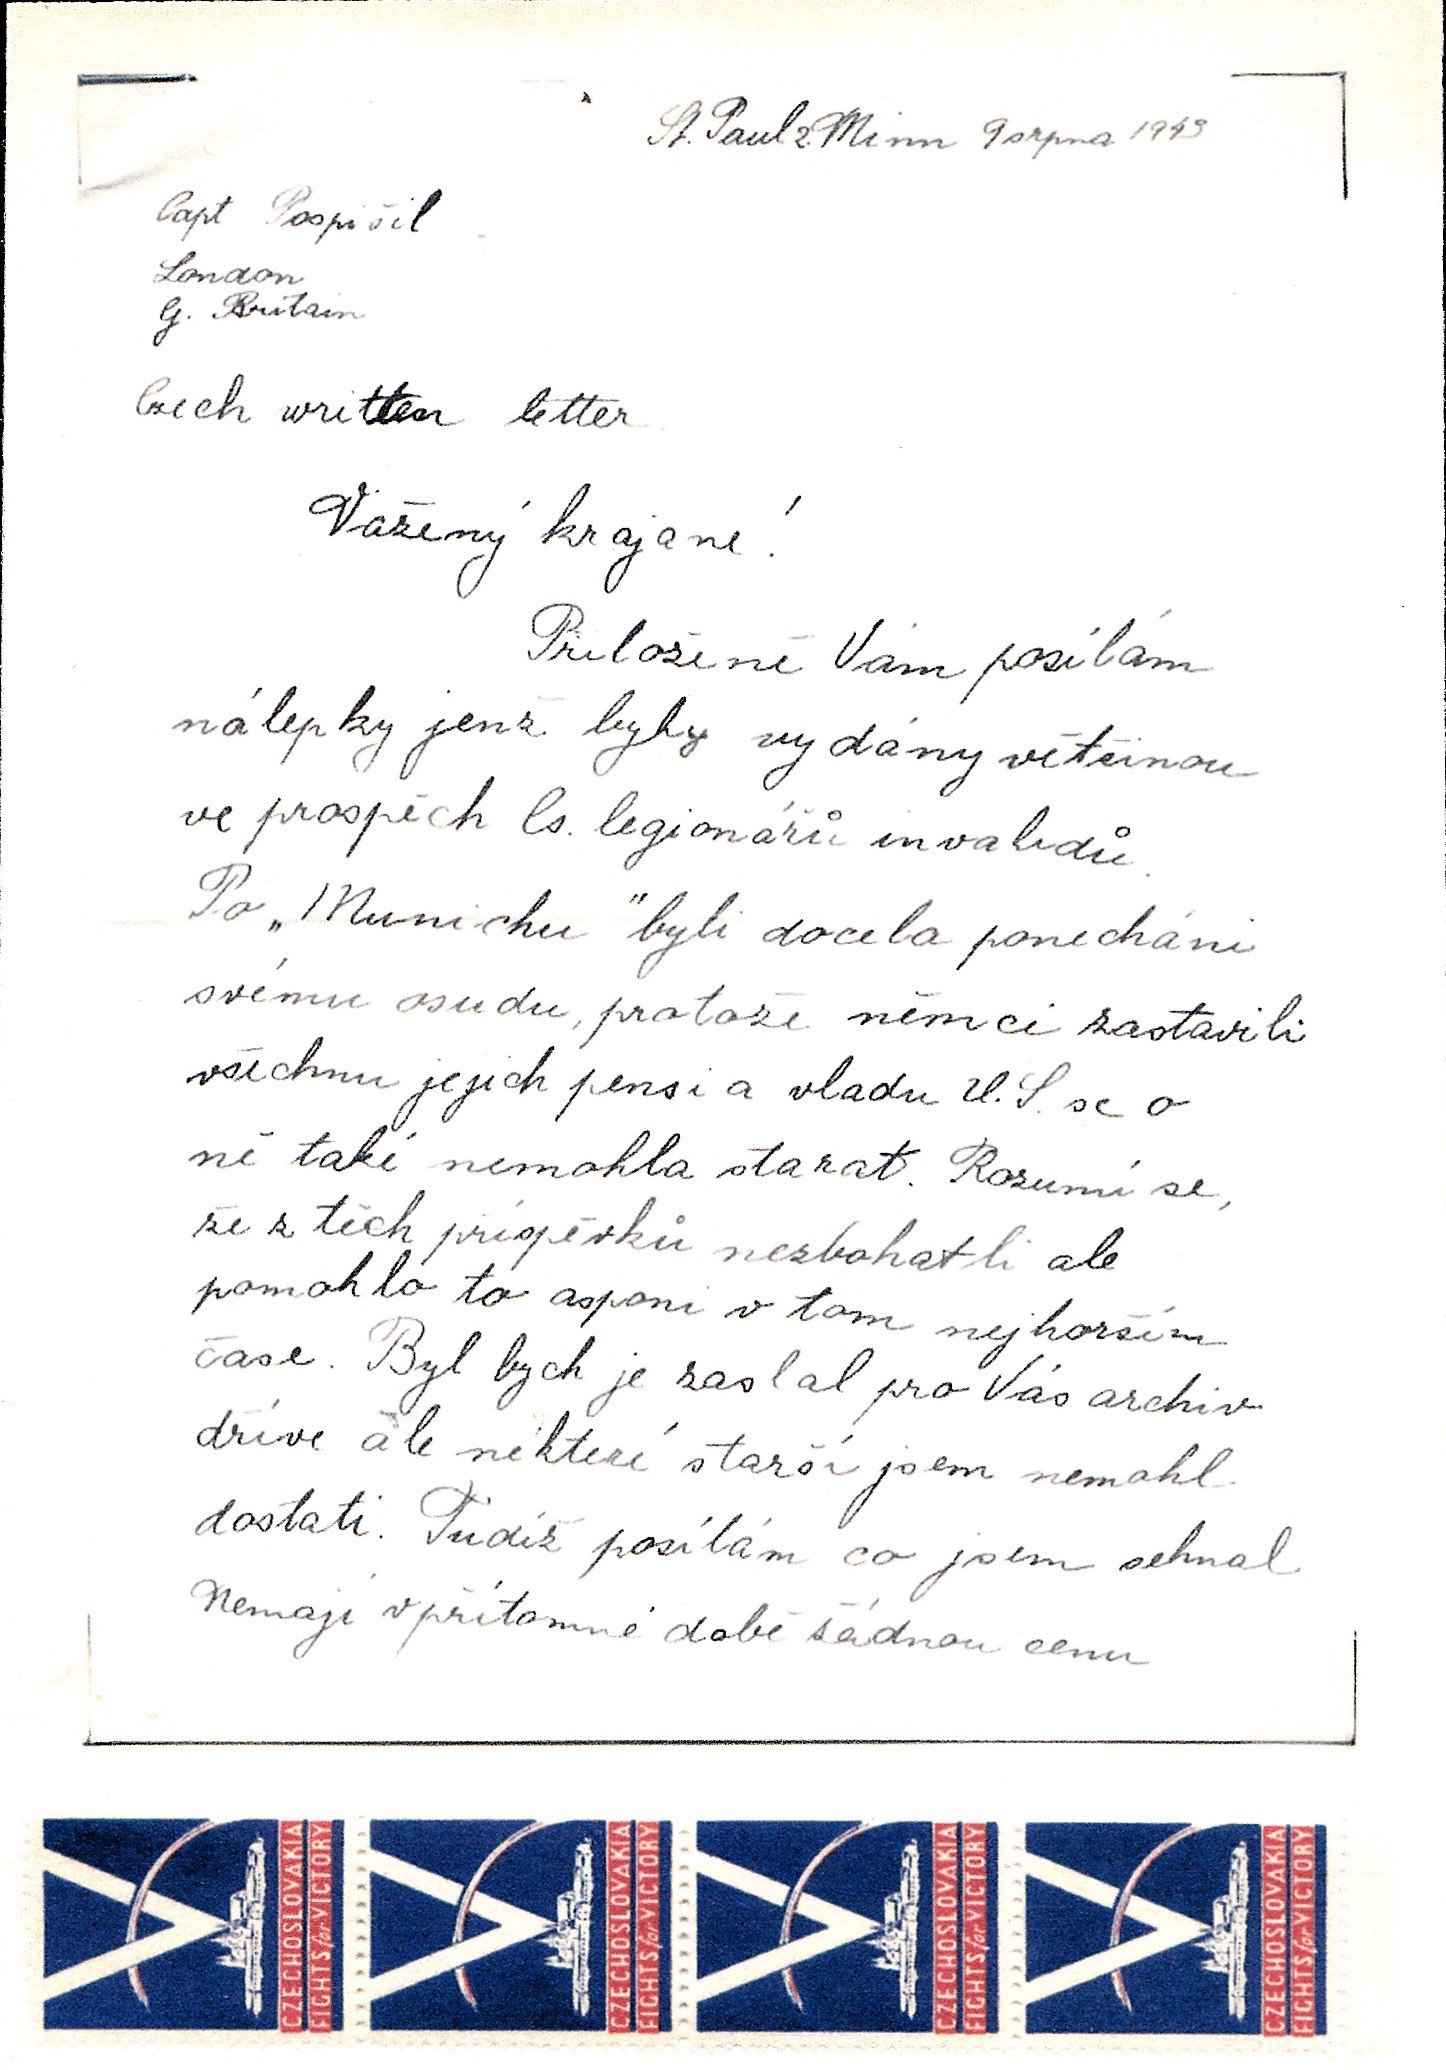 St. Paul 2. Minn 9 srpna 1943
Capt Pospíšil
London
G. Britain
Czech written letter
Vážený krajane!
Přiloženě Vám posílám
nálepky jenž byly vydány většinou
ve prospěch Čs. legionářů invalidů.
Po „Munichu" byli docela ponecháni
svému osudu, protože němci zastavili
všechnu jejich pensi a vladu U.S. se o
ně také nemohla starat. Rozumí se,
že z těch přispěvků nezbohatli ale
pomohlo to asponi v tom nejhorším
čase. Byl bych je zaslal pro Vás archiv
dříve ale některé starší jsem nemohl
dostati. Tudíž posílám co jsem sehnal
Nemají v přítomné době žádnou cenu
CZECHOSLOVAKIA
FIGHTS for VICTORY
CZECHOSLOVAKIA
FIGHTS for VICTORY
CZECHOSLOVAKIA
FIGHTS for VICTORY
CZECHOSLOVAKIA
FIGHTS for VICTORY